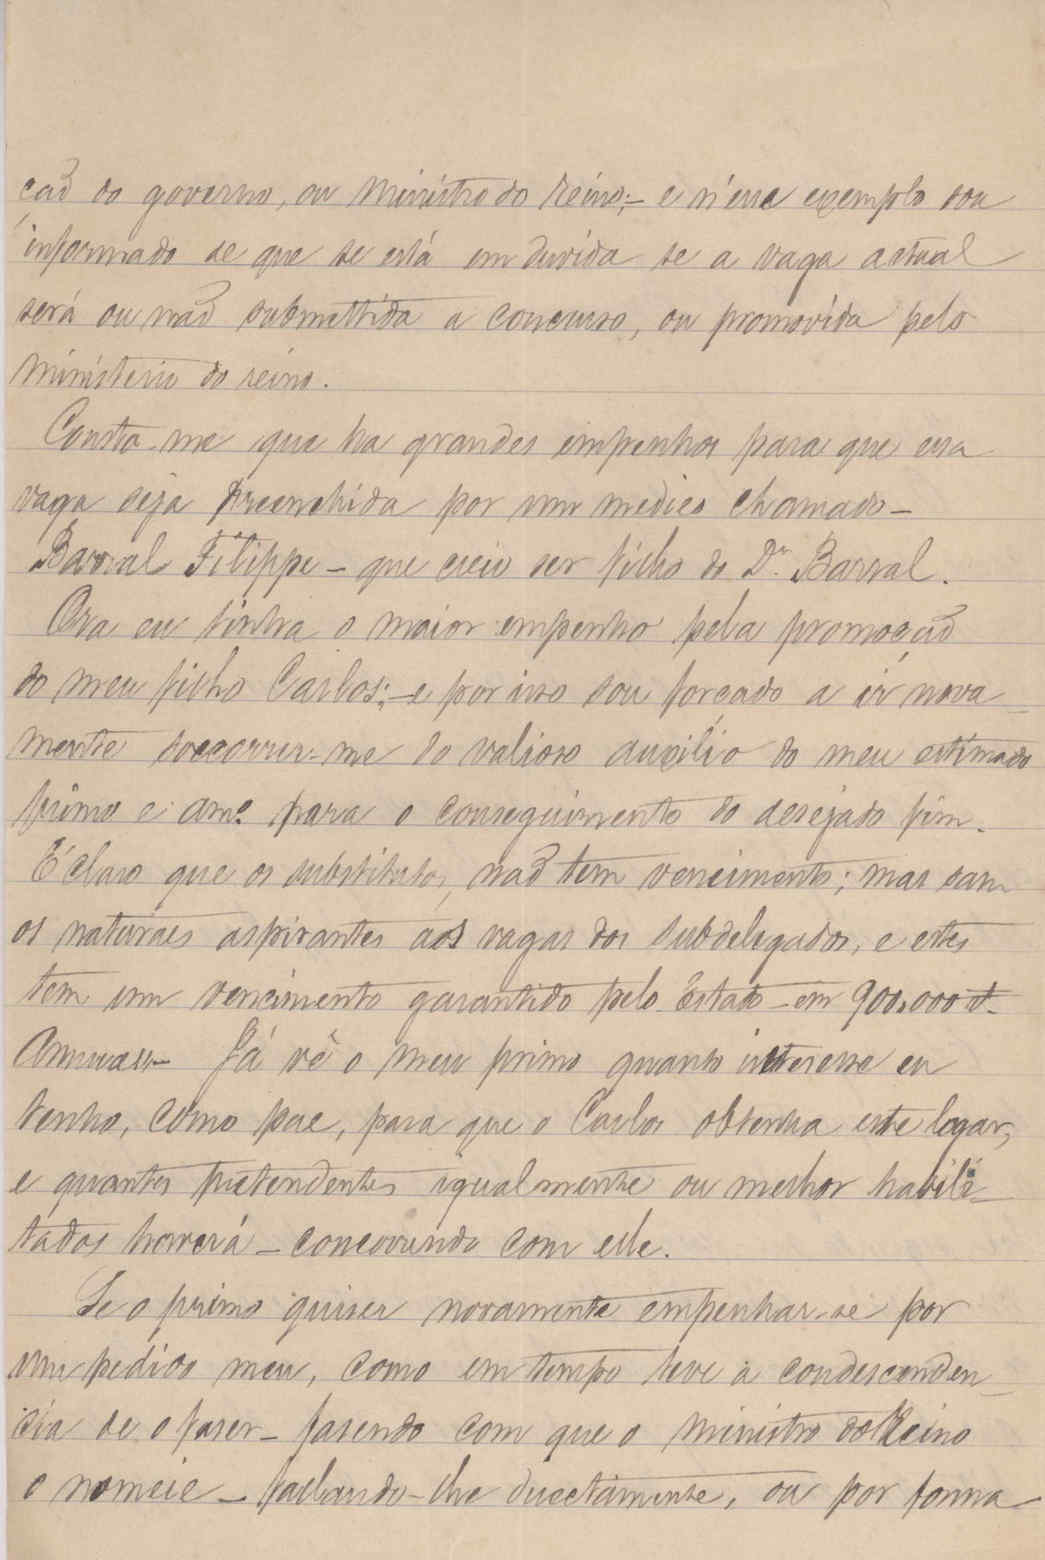 ção do governo, ou ministro do reino; – e n'esse exemplo sou
informado de que se está em duvida se a vaga actual
será ou não submettida a concurso, ou promovida pelo
ministerio do reino.
Consta-me que ha grandes empenhos para que essa
vaga seja preenchida por um medico chamado –
Barral Filippe – que creio ser filho do Dr. Barral.
Ora eu tinha o maior empenho pela promoção
do meu filho Carlos; – e por isso sou forçado a ir nova-
mente soccorrer-me do valioso auxilio do meu estimado
primo e amo. para o conseguimento do desejado fim.
É claro que os substitutos, não tem vencimento; mas sam
os naturaes aspirantes aos vagas dos subdelegados, e estes
tem um vencimento garantido pelo Estado – em 900.000 rs.
Annuaes – Já vê o meu primo quanto interesse eu
tenho, como pae, para que o Carlos obtenha este logar,
e quantos pretendentes igualmente ou melhor habili-
tados haverá – concorrendo com elle.
Se o primo quiser novamente empenhar-se por
um pedido meu, como em tempo teve a condescenden-
cia de o faser – fasendo com que o ministro do Reino
o nomeie – fallando-lhe directamente, ou por forma